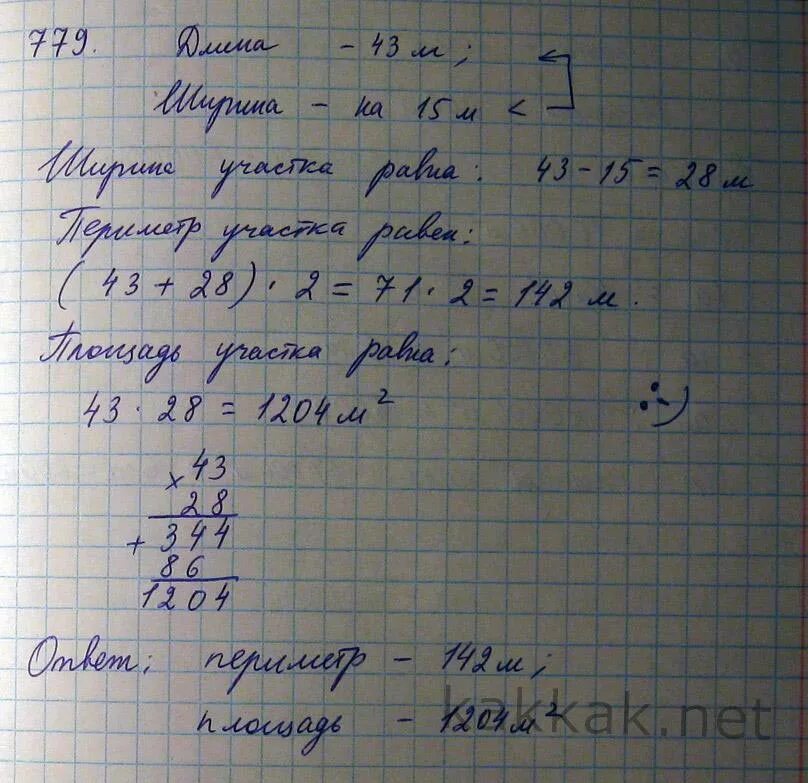 779. Длина - 43 м;
Ширина - на 15 м <
Ширина участка равна: 43 - 15 = 28 м
Периметр участка равен:
( 43 + 28) · 2 = 71 · 2 = 142 м.
Площадь участка равна:
43 · 28 = 1204 м²
:-)
× 43
28
+ 344
86
1204
Ответ: периметр - 142 м;
площадь - 1204 м²
kakkak.net